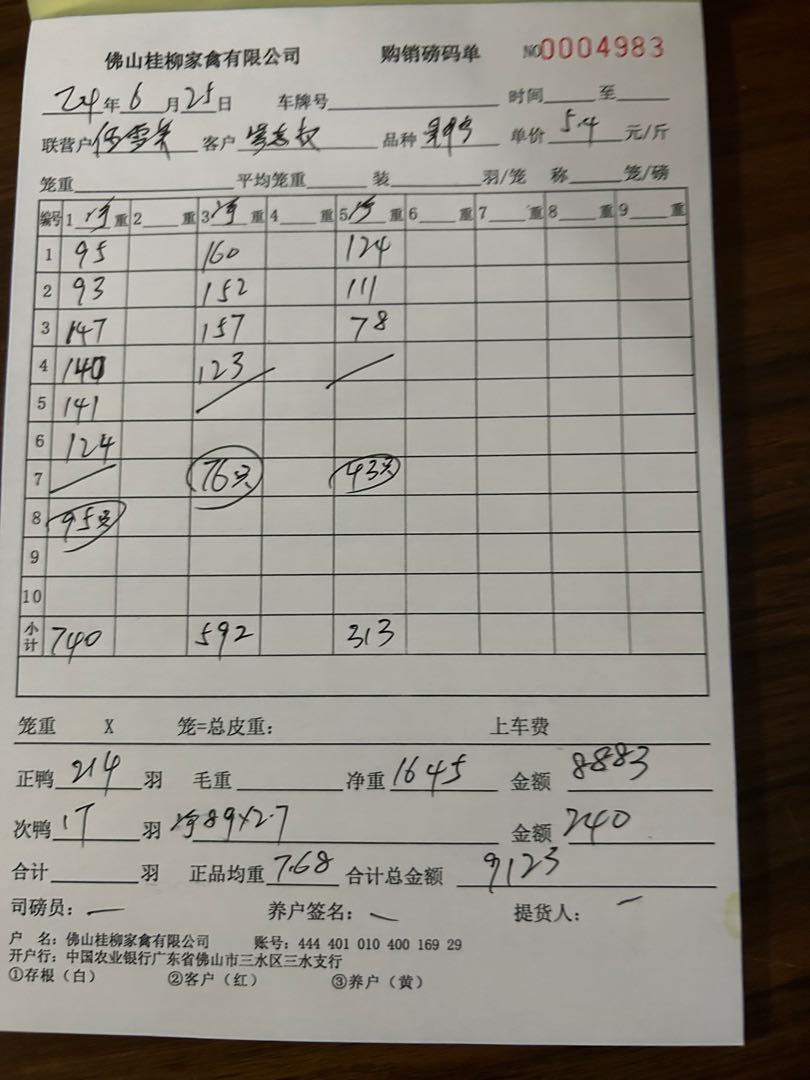 佛山桂柳家禽有限公司 购销磅码单 NO0004983
24年6月25日 车牌号 时间 至
联营户 客户 品种 单价5.4元/斤
笼重 平均笼重 装 羽/笼 称 笼/磅
编号 1净重 2重 3净重 4重 5净重 6重 7重 8重 9重
1 95 160 124
2 93 152 111
3 147 157 78
4 140 123
5 141
6 124
7 76只 43只
8 95只
9
10
小计 740 592 313
笼重 X 笼=总皮重: 上车费
正鸭214羽 毛重 净重1645 金额8883
次鸭17羽 净89×2.7 金额240
合计 羽 正品均重7.68 合计总金额9123
司磅员: 养户签名: 提货人:
户 名: 佛山桂柳家禽有限公司 账号: 444 401 010 400 169 29
开户行: 中国农业银行广东省佛山市三水区三水支行
①存根(白) ②客户(红) ③养户(黄)